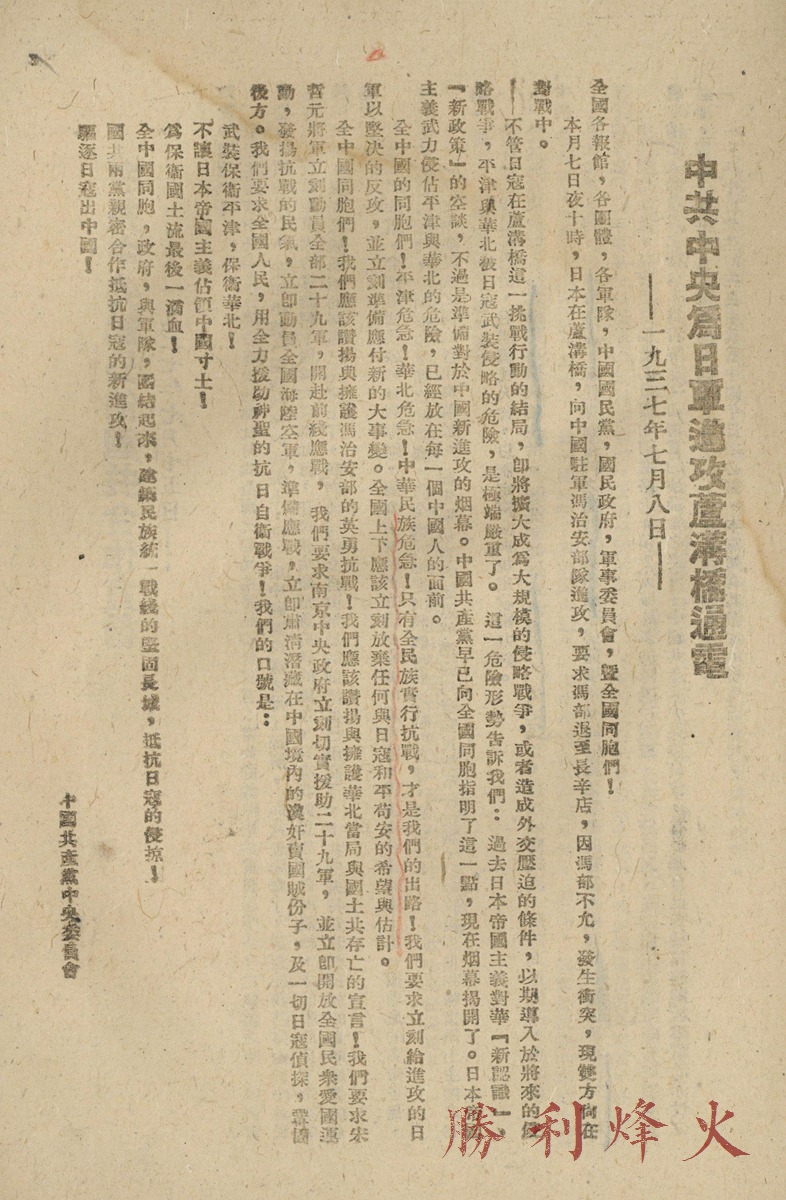 中共中央爲日軍進攻蘆溝橋通電
——一九三七年七月八日——
全國各報館，各團體，各軍隊，中國國民黨，國民政府，軍事委員會，暨全國同胞們！
本月七日夜十時，日本在蘆溝橋，向中國駐軍馮治安部隊進攻，要求馮部退至長辛店，因馮部不允，發生衝突，現雙方尙在
對戰中。
——不管日寇在蘆溝橋這一挑戰行動的結局，卽將擴大成爲大規模的侵略戰爭，或者造成外交壓迫的條件，以期導入於將來的侵
略戰爭，平津與華北被日寇武裝侵略的危險，是極端嚴重了。這一危險形勢告訴我們：過去日本帝國主義對華『新認識』，
『新政策』的空談，不過是準備對於中國新進攻的烟幕。中國共產黨早已向全國同胞指明了這一點，現在烟幕揭開了。日本帝國
主義武力侵佔平津與華北的危險，已經放在每一個中國人的面前。
全中國的同胞們！平津危急！華北危急！中華民族危急！只有全民族實行抗戰，才是我們的出路！我們要求立刻給進攻的日
軍以堅决的反攻，並立刻準備應付新的大事變。全國上下應該立刻放棄任何與日寇和平苟安的希望與估計。
全中國同胞們！我們應該讚揚與擁護馮治安部的英勇抗戰！我們應該讚揚與擁護華北當局與國土共存亡的宣言！我們要求宋
哲元將軍立刻動員全部二十九軍，開赴前綫應戰，我們要求南京中央政府立刻切實援助二十九軍，並立卽開放全國民衆愛國運
動，發揚抗戰的民氣，立卽動員全國海陸空軍，準備應戰，立卽肅清潛藏在中國境內的漢奸賣國賊份子，及一切日寇偵探，鞏固
後方。我們要求全國人民，用全力援助神聖的抗日自衛戰爭！我們的口號是：
武裝保衛平津，保衛華北！
不讓日本帝國主義佔領中國寸土！
爲保衛國土流最後一滴血！
全中國同胞，政府，與軍隊，團結起來，建築民族統一戰綫的堅固長城，抵抗日寇的侵掠！
國共兩黨親密合作抵抗日寇的新進攻！
驅逐日寇出中國！
中國共產黨中央委員會
勝利烽火